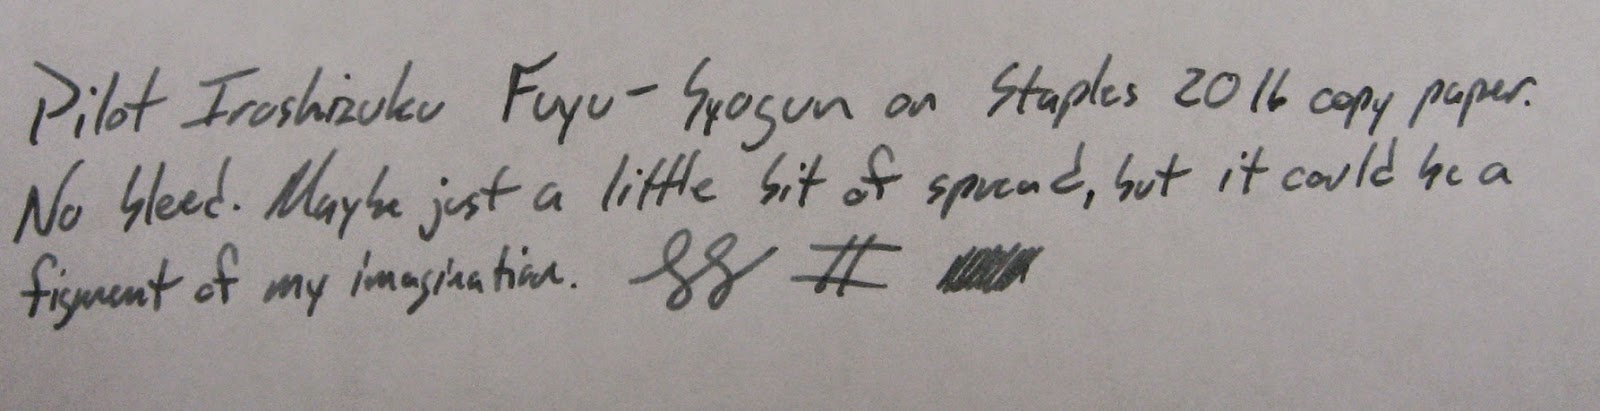 Pilot Iroshizuku Fuyu-Syogun on Staples 20 lb copy paper.
No bleed. Maybe just a little bit of spread, but it could be a
figment of my imagination.